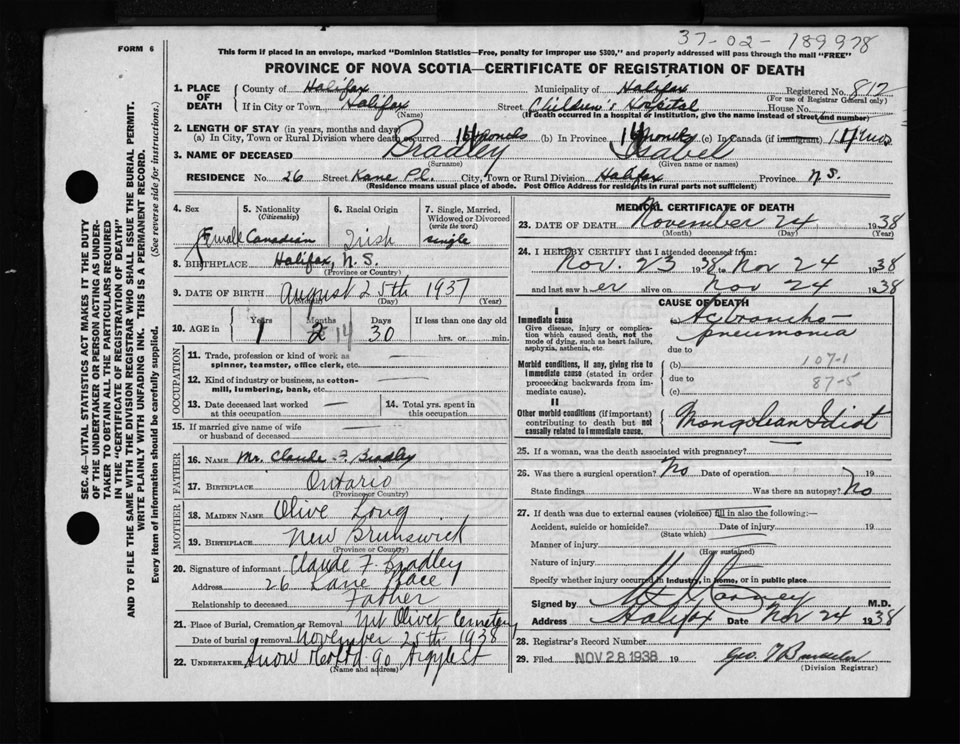 37-02-189978
FORM 6
This form if placed in an envelope, marked "Dominion Statistics—Free, penalty for improper use $300," and properly addressed will pass through the mail "FREE"
PROVINCE OF NOVA SCOTIA—CERTIFICATE OF REGISTRATION OF DEATH
1. PLACE OF DEATH County of Halifax Municipality of Halifax Registered No. 812
(For use of Registrar General only)
If in City or Town Halifax Street Children's Hospital House No.
(Name) (If death occurred in a hospital or institution, give the name instead of street and number)
2. LENGTH OF STAY (in years, months and days)
(a) In City, Town or Rural Division where death occurred 14 months (b) In Province 14 months (c) In Canada (if immigrant) 14 mos
3. NAME OF DECEASED Bradley Isabel
(Surname) (Given name or names)
RESIDENCE No. 26 Street Kane Pl. City, Town or Rural Division Halifax Province N.S.
(Residence means usual place of abode. Post Office Address for residents in rural parts not sufficient)
4. Sex 5. Nationality (Citizenship) 6. Racial Origin 7. Single, Married, Widowed or Divorced (write the word)
Female Canadian Irish single
8. BIRTHPLACE Halifax, N.S.
(Province or Country)
9. DATE OF BIRTH August 25th 1937
(Month) (Day) (Year)
10. AGE in Years Months Days If less than one day old
1 2 14 30 hrs. or min.
OCCUPATION
11. Trade, profession or kind of work as spinner, teamster, office clerk, etc.
12. Kind of industry or business, as cotton-mill, lumbering, bank, etc.
13. Date deceased last worked at this occupation 14. Total yrs. spent in this occupation
15. If married give name of wife or husband of deceased
FATHER
16. NAME Mr. Claude F. Bradley
17. BIRTHPLACE Ontario
(Province or Country)
MOTHER
18. MAIDEN NAME Olive Long
19. BIRTHPLACE New Brunswick
(Province or Country)
20. Signature of informant Claude F. Bradley
Address 26 Kane Place
Relationship to deceased Father
21. Place of Burial, Cremation or Removal Mt Olivet Cemetery
Date of burial or removal November 25th 1938
22. UNDERTAKER Snow & Co Ltd 90 Argyle St
(Name and address)
MEDICAL CERTIFICATE OF DEATH
23. DATE OF DEATH November 24 1938
(Month) (Day) (Year)
24. I HEREBY CERTIFY that I attended deceased from:
Nov. 23 1938 to Nov 24 1938
and last saw her alive on Nov 24 1938
CAUSE OF DEATH
I
Immediate cause
Give disease, injury or complication which caused death, not the mode of dying, such as heart failure, asphyxia, asthenia, etc.
(a) Ac broncho-pneumonia
due to
Morbid conditions, if any, giving rise to immediate cause (stated in order proceeding backwards from immediate cause).
(b) 107-1
due to 87-5
(c)
II
Other morbid conditions (if important) contributing to death but not causally related to immediate cause.
Mongolean Idiot
25. If a woman, was the death associated with pregnancy?
26. Was there a surgical operation? No Date of operation 19
State findings Was there an autopsy? No
27. If death was due to external causes (violence) fill in also the following:—
Accident, suicide or homicide? Date of injury 19
(State which)
Manner of injury
(How sustained)
Nature of injury
Specify whether injury occurred in industry, in home, or in public place
Signed by M.D.
Address Halifax Date Nov 24 1938
28. Registrar's Record Number
29. Filed NOV 28 1938 19 Geo.
(Division Registrar)
SEC. 46—VITAL STATISTICS ACT MAKES IT THE DUTY
OF THE UNDERTAKER OR PERSON ACTING AS UNDER-
TAKER TO OBTAIN ALL THE PARTICULARS REQUIRED
IN THE "CERTIFICATE OF REGISTRATION OF DEATH"
AND TO FILE THE SAME WITH THE DIVISION REGISTRAR WHO SHALL ISSUE THE BURIAL PERMIT.
WRITE PLAINLY WITH UNFADING INK. THIS IS A PERMANENT RECORD.
Every item of Information should be carefully supplied.
(See reverse side for instructions.)